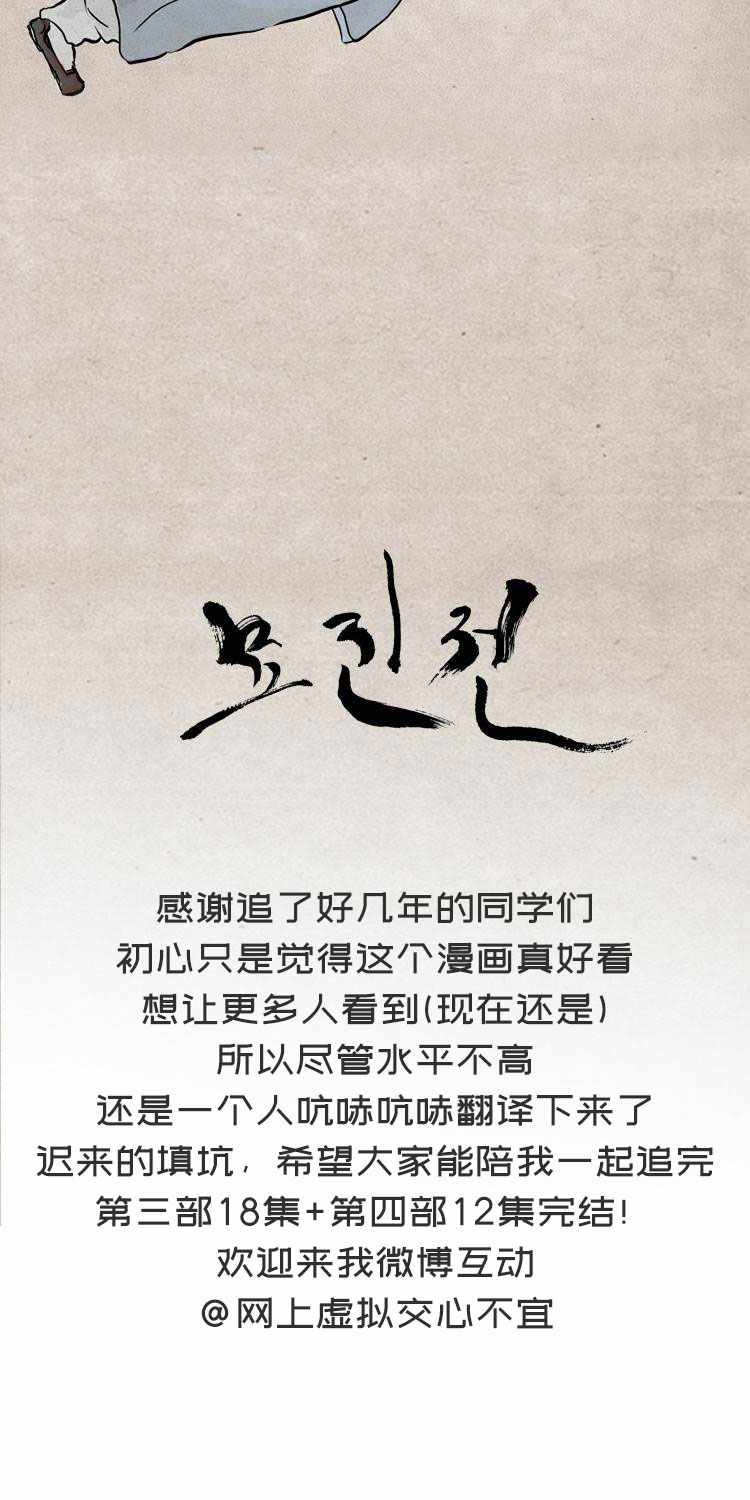 묘진전
感谢追了好几年的同学们
初心只是觉得这个漫画真好看
想让更多人看到(现在还是)
所以尽管水平不高
还是一个人吭哧吭哧翻译下来了
迟来的填坑，希望大家能陪我一起追完
第三部18集+第四部12集完结！
欢迎来我微博互动
@网上虚拟交心不宜